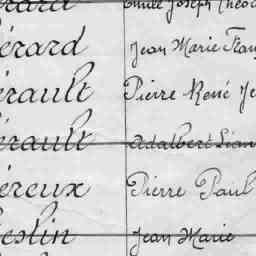 érard Emile Joseph Théo
érard Jean Marie Fran
érault Pierre René Je
érault Adalbert Léan
éreux Pierre Paul
eslin Jean Marie